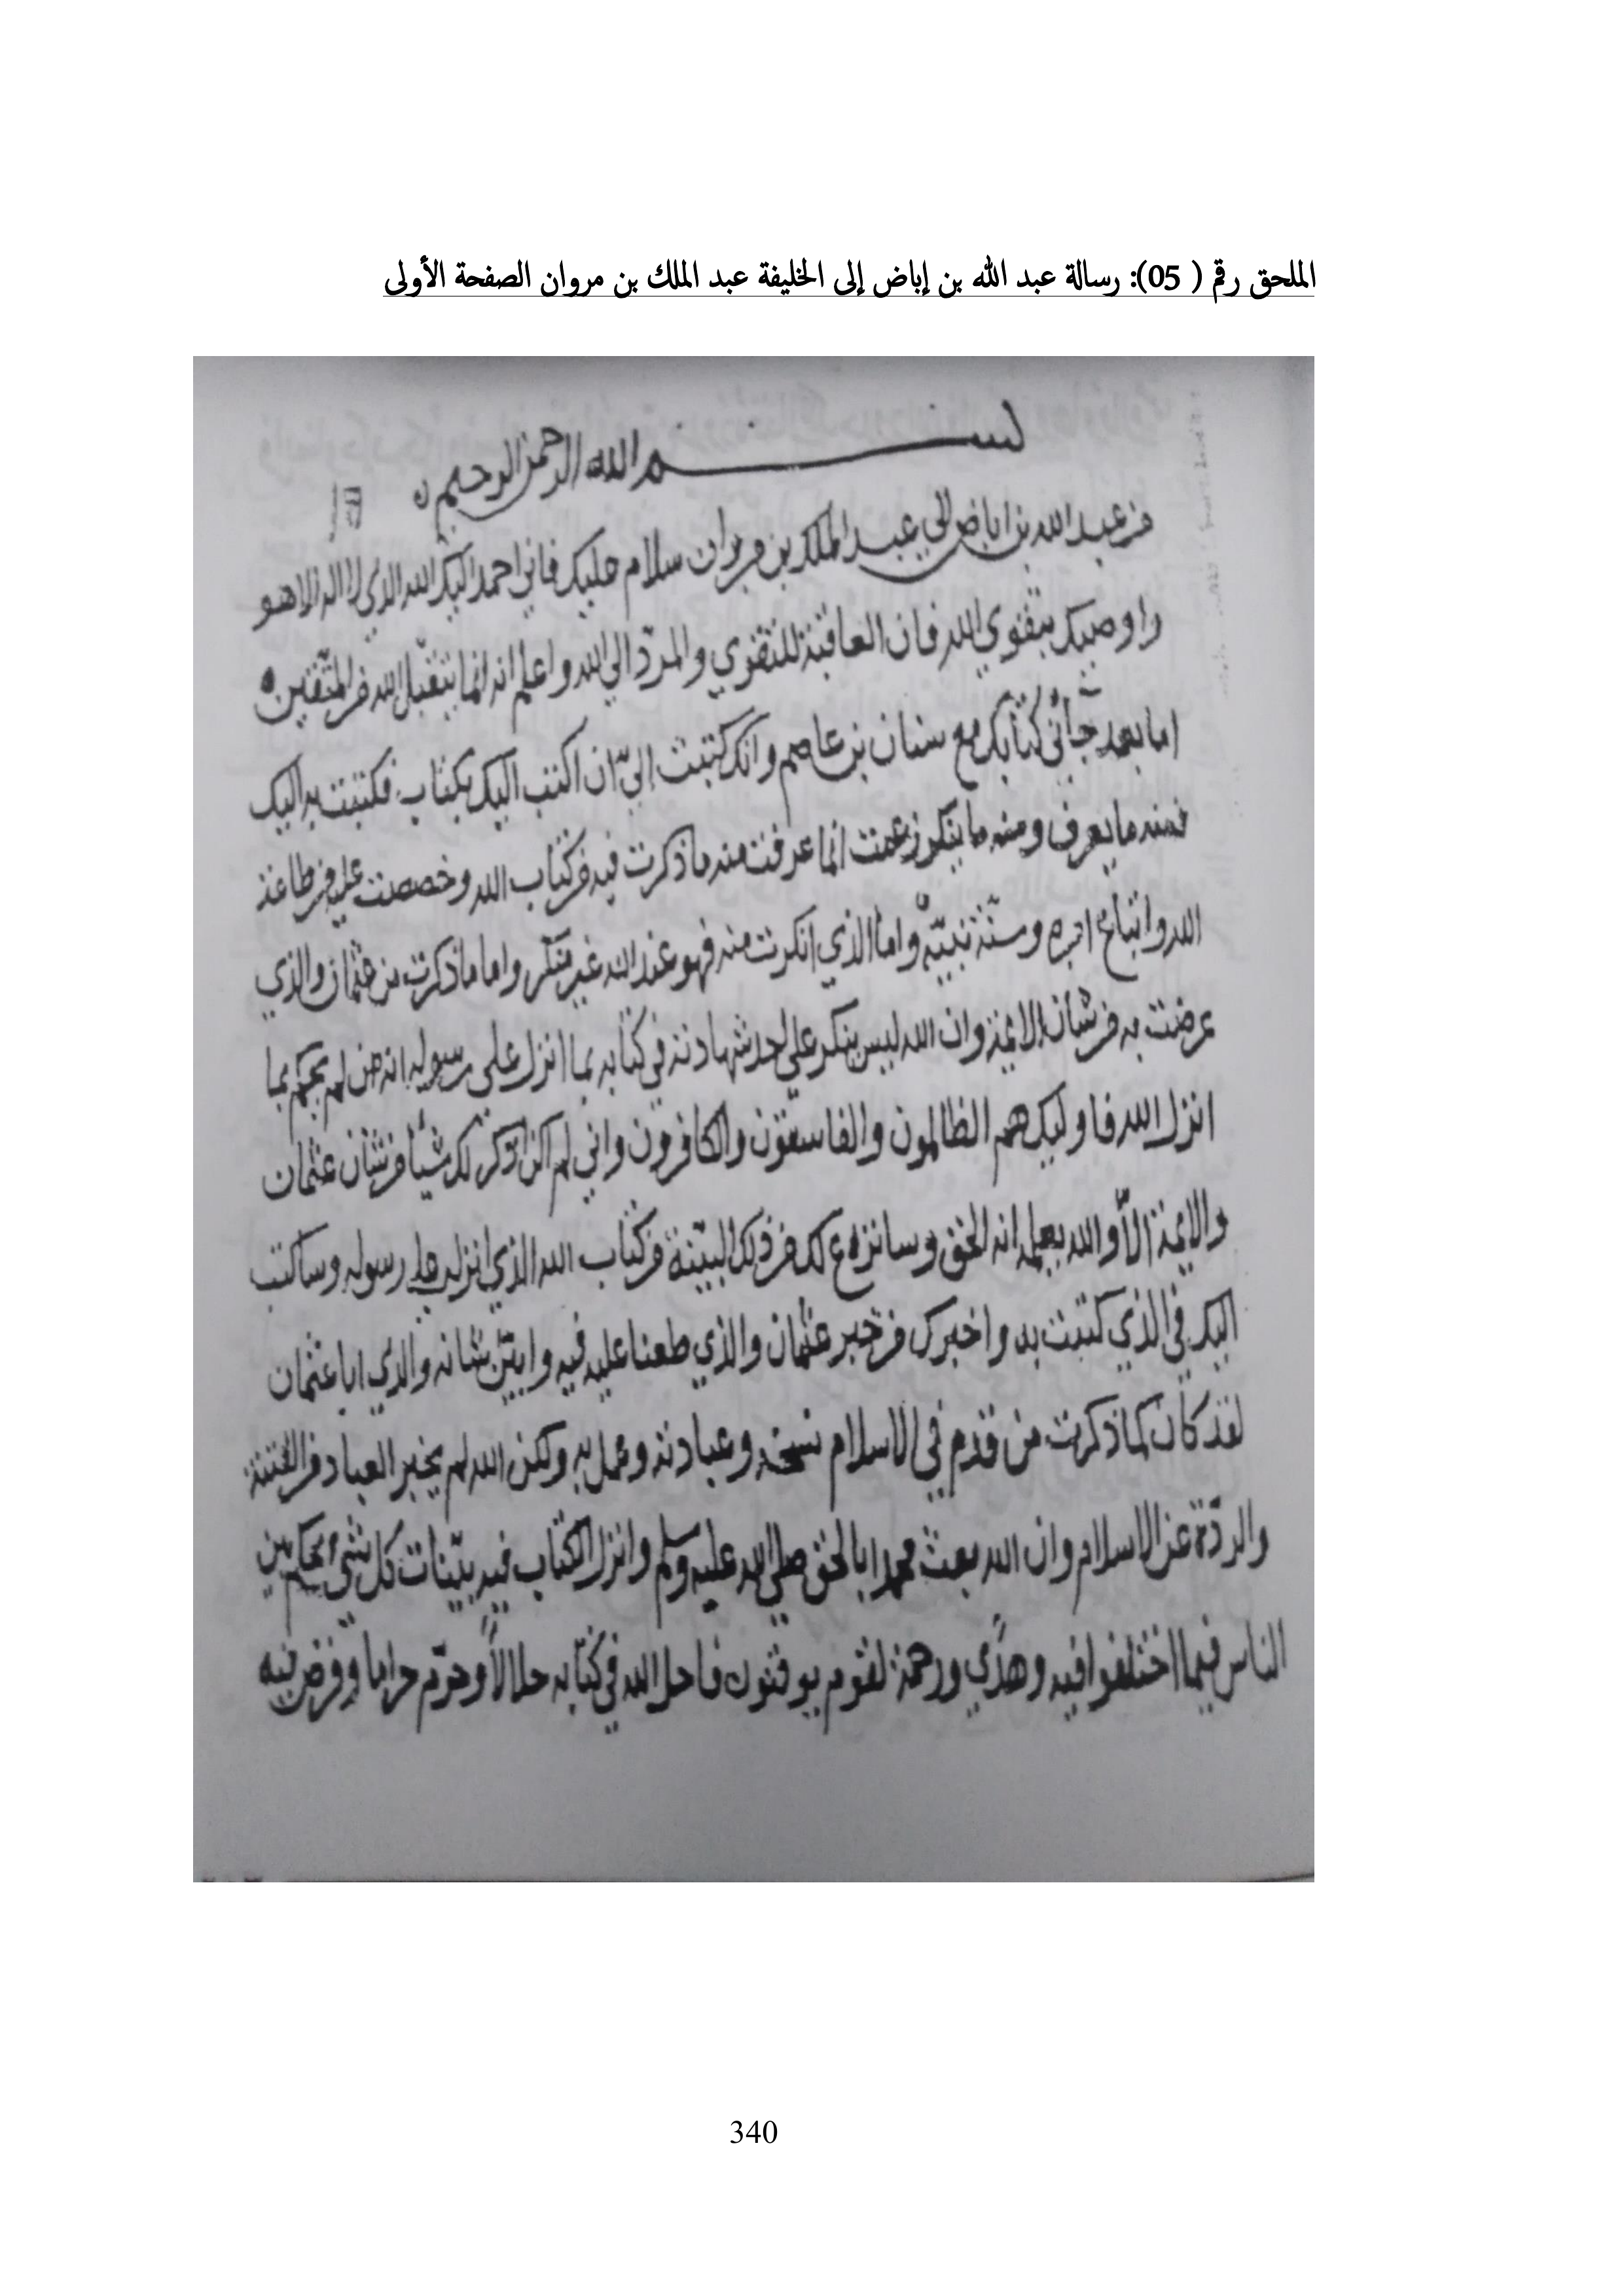 الملحق رقم ( 05): رسالة عبد الله بن إباض إلى الخليفة عبد الملك بن مروان الصفحة الأولى
بسم الله الرحمن الرحيم
من عبد الله بن اباض الي عبد الملك بن مروان سلام عليك فاني احمد اليك الله الذي لا اله الا هو
واوصيك بتقوي الله فان العاقبة للتقوي والمردّ الي الله واعلم انه انما يتقبل الله من المتقين
اما بعد جاني كتابك مع سنان بن عاصم وانك كتبت اليّ ان اكتب اليك بكتاب فكتبت به اليك
فمنه ما يعرف ومنه ما ينكر زعمت انما عرفت منه ما ذكرت فيه من كتاب الله وخصصت عليه من طاعة
الله واتباع امره وسنّة نبيّه واما الذي انكرت منه فهو عند الله غير منكر واما ما ذكرت من عثمان والذي
عرضت به من شان الايمة وان الله ليس ينكر علي احد شهادته في كتابه بما انزل على رسوله انه من لم يحكم بما
انزل الله فاوليك هم الظالمون والفاسقون والكافرون واني لم اكن اذكر لك شيا من شان عثمان
والايمة الاّ والله يعلم انه الحق وسانزع لك من ذلك البيّنة من كتاب الله الذي انزله على رسوله وساكتب
اليك في الذي كتبت به واخبرك من خبر عثمان والذي طعنا عليه فيه وابيّن شانه والذي اتا عثمان
لقد كان كما ذكرت من قدم في الاسلام وعمل به ولكن الله لم يجبر العباد من الفتنة
والردّة عن الاسلام وان الله بعث محمدا بالحق صلى الله عليه وسلم وانزل الكتاب فيه بيّنات كل شي يحكم بين
الناس فيما اختلفوا فيه وهدًي ورحمة لقوم يوقنون فاحل الله في كتابه حلالاً وحرّم حراما وفرض فيه
340